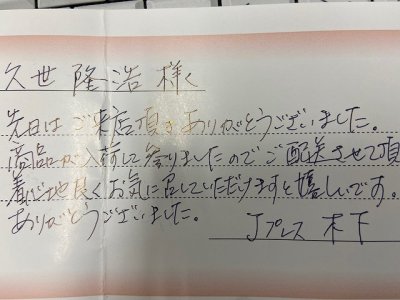 久世 隆浩 様
先日は ご来店頂き ありがとうございました。
商品が入荷して参りましたのでご配送させて頂
着心地良くお気に召していただけますと嬉しいです。
ありがとうございました。
Jプレス 木下